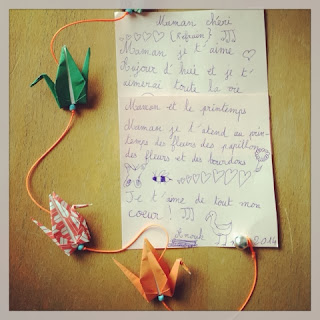 Maman chéri
(Refrain)
Maman je t'aime
d'hui et je t'
aimerai toute la vie
Maman et le printemps
Maman je t'atend au prin-
temps des fleurs des papillons
des fleurs et des bourdons
Je t'aime de tout mon
coeur !
2014